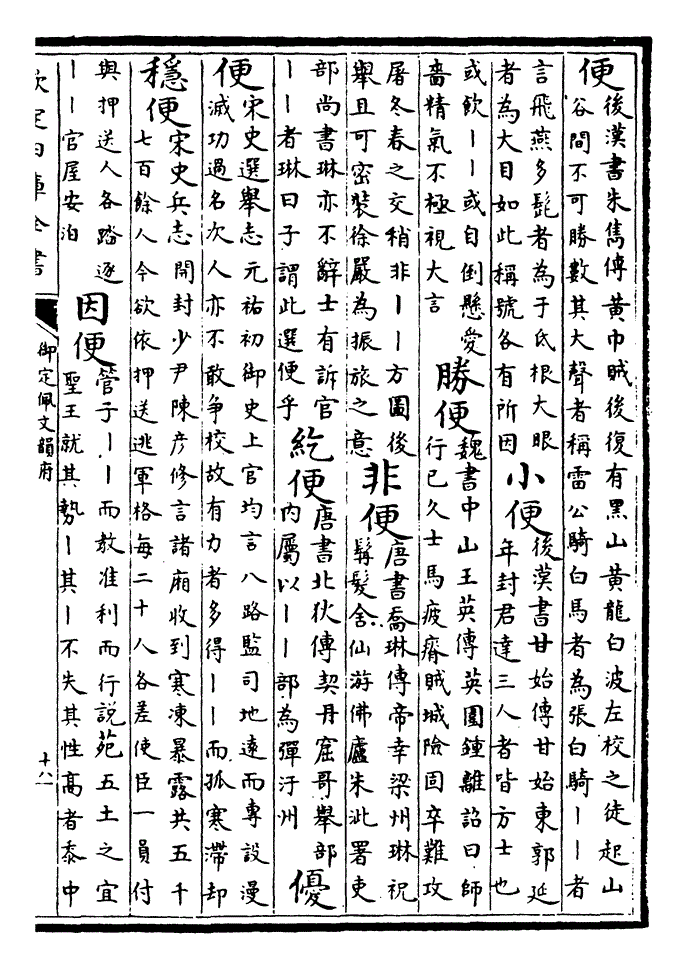 便
後漢書朱儁傳黃巾賊後復有黑山黃龍白波左校之徒起山
谷間不可勝數其大聲者稱雷公騎白馬者為張白騎丨丨者
言飛燕多髭者為于氐根大眼
者為大目如此稱號各有所因
小便
後漢書甘始傳甘始東郭延
年封君達三人者皆方士也
或飲丨丨或自倒懸愛
嗇精氣不極視大言
勝便
魏書中山王英傳英圍鍾離詔曰師
行已久士馬疲瘠賊城險固卒難攻
屠冬春之交稍非丨丨方圖後
舉且可密裝徐嚴為振旅之意
非便
唐書喬琳傳帝幸梁州琳祝
髯髮舍仙游佛廬朱泚署吏
部尚書琳亦不辭士有訴官
丨丨者琳曰子謂此選便乎
紇便
唐書北狄傳契丹窟哥舉部
內屬以丨丨部為彈汙州
優
便
宋史選舉志元祐初御史上官均言八路監司地遠而專設漫
滅功過名次人亦不敢爭校故有力者多得丨丨而孤寒滯却
穩便
宋史兵志開封少尹陳彥修言諸廂收到寒凍暴露共五千
七百餘人今欲依押送逃軍格每二十人各差使臣一員付
與押送人各踏逐
丨丨官屋安泊
因便
管子丨丨而教准利而行說苑五土之宜
聖王就其勢丨其丨不失其性高者黍中
欽定四庫全書
御定佩文韻府
十八